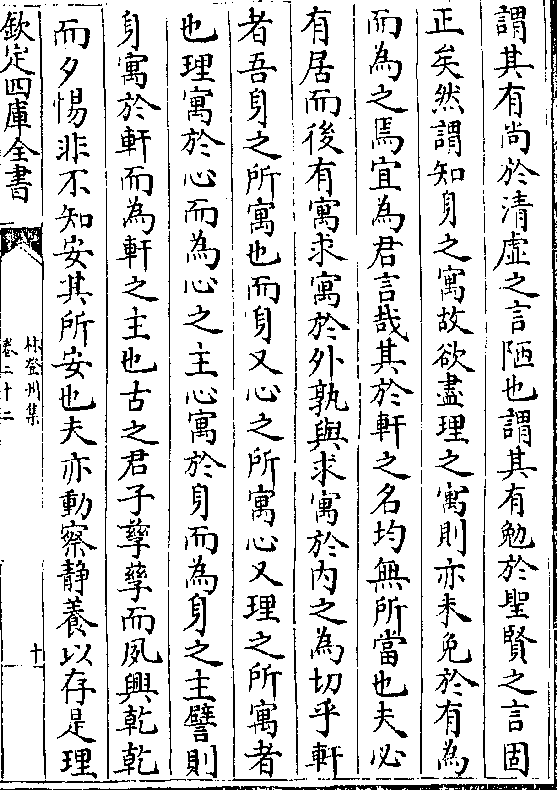 謂其有尚於清虛之言陋也謂其有勉於聖賢之言固
正矣然謂知身之寓故欲盡理之寓則亦未免於有為
而為之焉宜為君言哉其於軒之名均無所當也夫必
有居而後有寓求寓於外孰與求寓於内之為切乎軒
者吾身之所寓也而身又心之所寓心又理之所寓者
也理寓於心而為心之主心寓於身而為身之主譬則
身寓於軒而為軒之主也古之君子孳孳而夙興乾乾
而夕惕非不知安其所安也夫亦動察静養以存是理
欽定四庫全書
林登州集
卷二十二
十